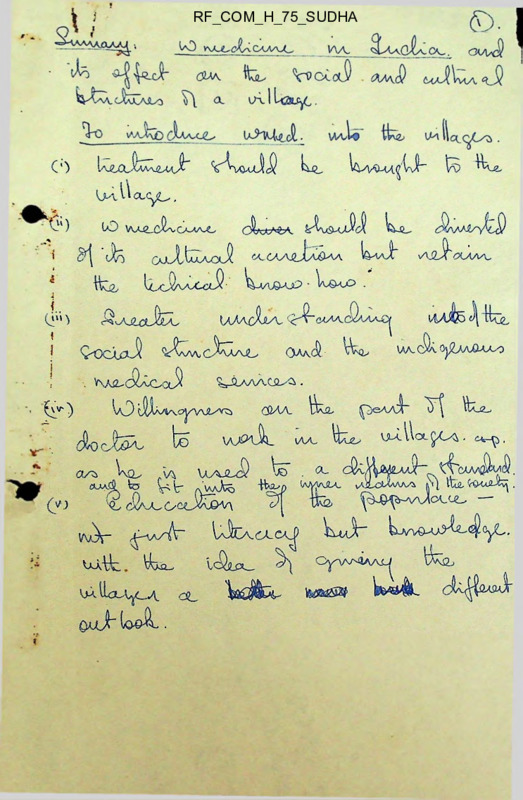 RF_COM_H_75_SUDHA
①.
Summary. W medicine in India. and
its effect on the social and cultural
structures of a village.
To introduce wmed. into the villages.
(i) treatment should be brought to the
village.
(ii) w medicine should be divested
of its cultural accretion but retain
the techical know-how.
(iii) Greater understanding of the
social structure and the indigenous
medical services.
(iv) Willingness on the part of the
doctor to work in the villages. esp.
as he is used to a different standard.
and to fit into the inner realms of the society.
(v) Education of the populace –
not just literacy but knowledge.
with the idea of giving the
villager a different
outlook.